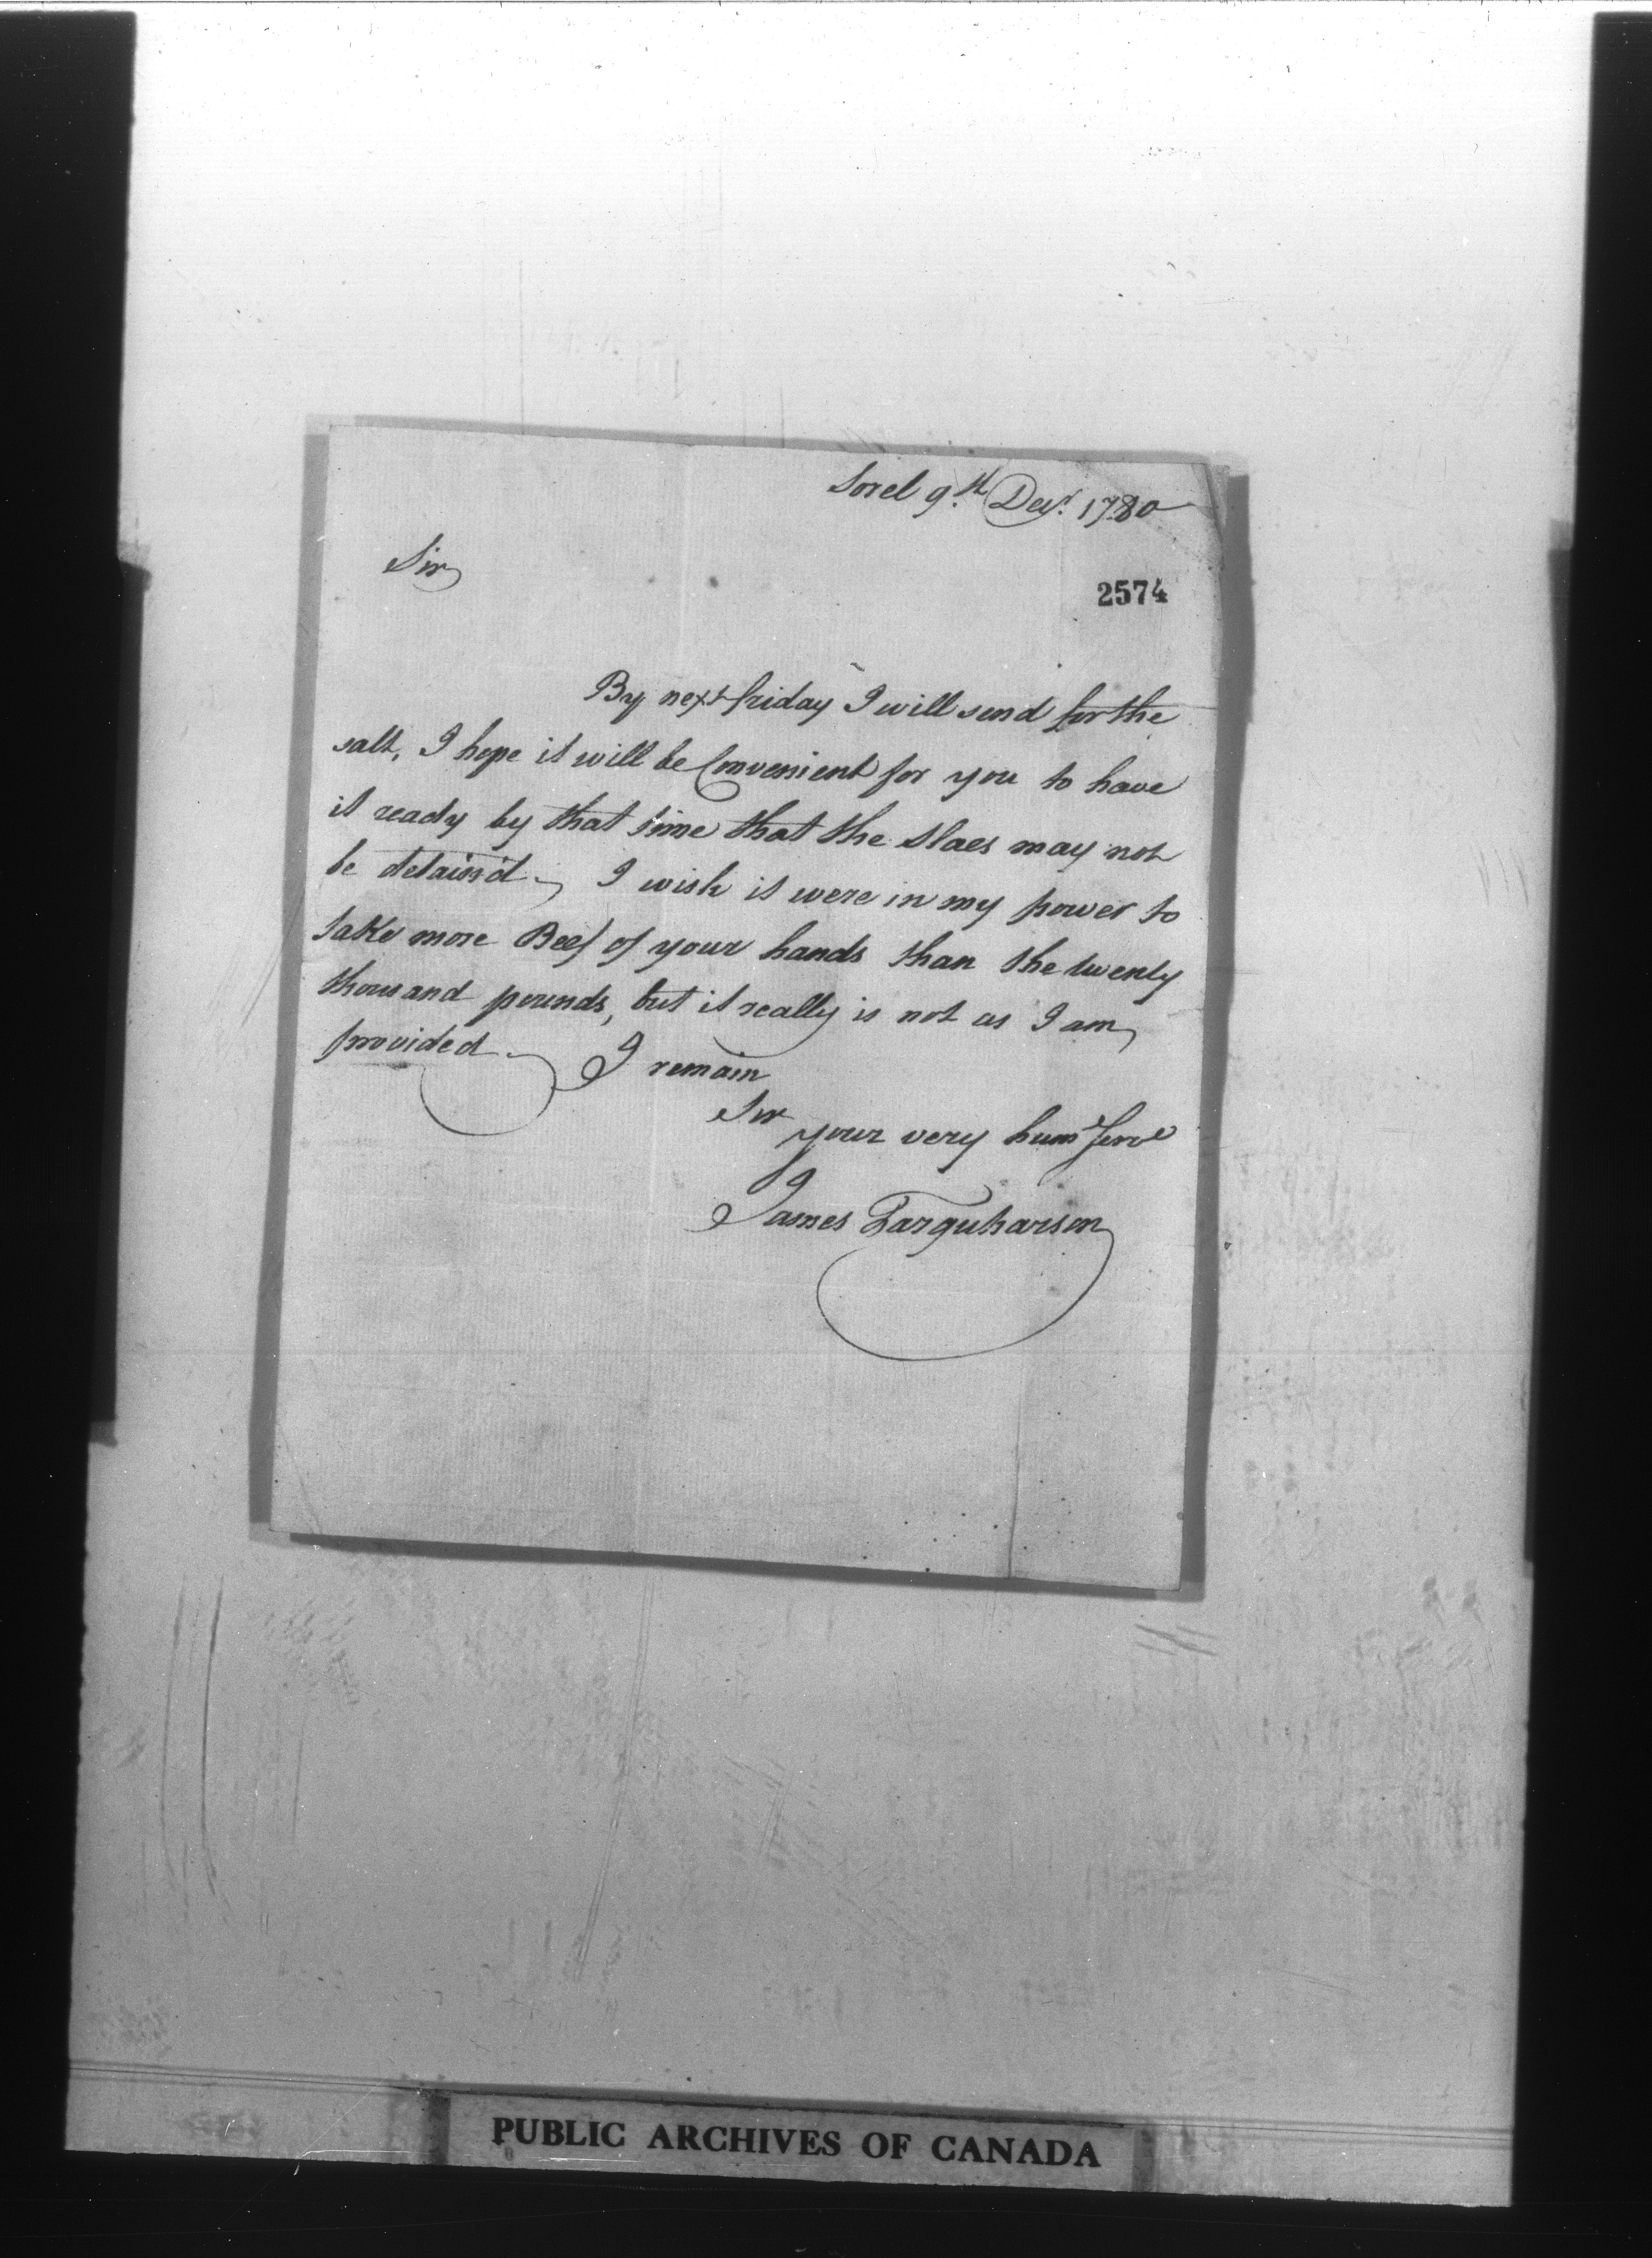 Sorel 9th Decr. 1780
Sir
2574
By next friday I will send for the
salt, I hope it will be Convenient for you to have
it ready by that time that the Slaes may not
be detain'd. I wish it were in my power to
take more Beef of your hands than the twenty
thousand pounds, but it really is not as I am
provided. I remain
Sir
your very hume Serve
James Farquharson
PUBLIC ARCHIVES OF CANADA